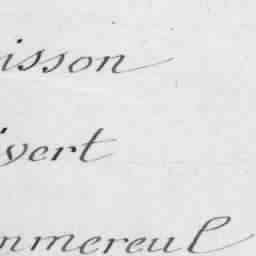 isson
ivert
mmereul